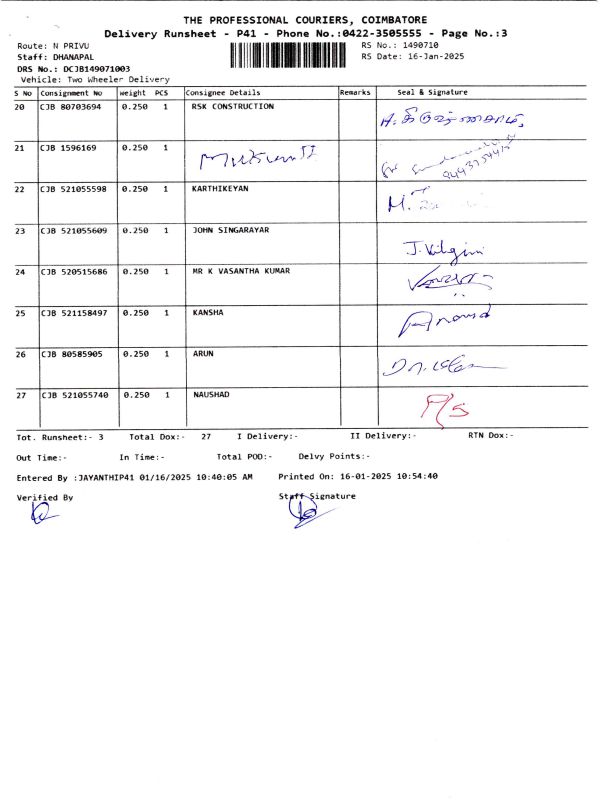 THE PROFESSIONAL COURIERS, COIMBATORE
Delivery Runsheet - P41 - Phone No.:0422-3505555 - Page No.:3
Route: N PRIVU
RS No.: 1490710
Staff: DHANAPAL
RS Date: 16-Jan-2025
DRS No.: DCJB149071003
Vehicle: Two Wheeler Delivery
S No Consignment No Weight PCS Consignee Details Remarks Seal & Signature
20 CJB 80703694 0.250 1 RSK CONSTRUCTION
21 CJB 1596169 0.250 1
22 CJB 521055598 0.250 1 KARTHIKEYAN
23 CJB 521055609 0.250 1 JOHN SINGARAYAR
24 CJB 520515686 0.250 1 MR K VASANTHA KUMAR
25 CJB 521158497 0.250 1 KANSHA
26 CJB 80585905 0.250 1 ARUN
27 CJB 521055740 0.250 1 NAUSHAD P/S
Tot. Runsheet:- 3 Total Dox:- 27 I Delivery:- II Delivery:- RTN Dox:-
Out Time:- In Time:- Total POD:- Delvy Points:-
Entered By :JAYANTHIP41 01/16/2025 10:40:05 AM Printed On: 16-01-2025 10:54:40
Verified By Staff Signature